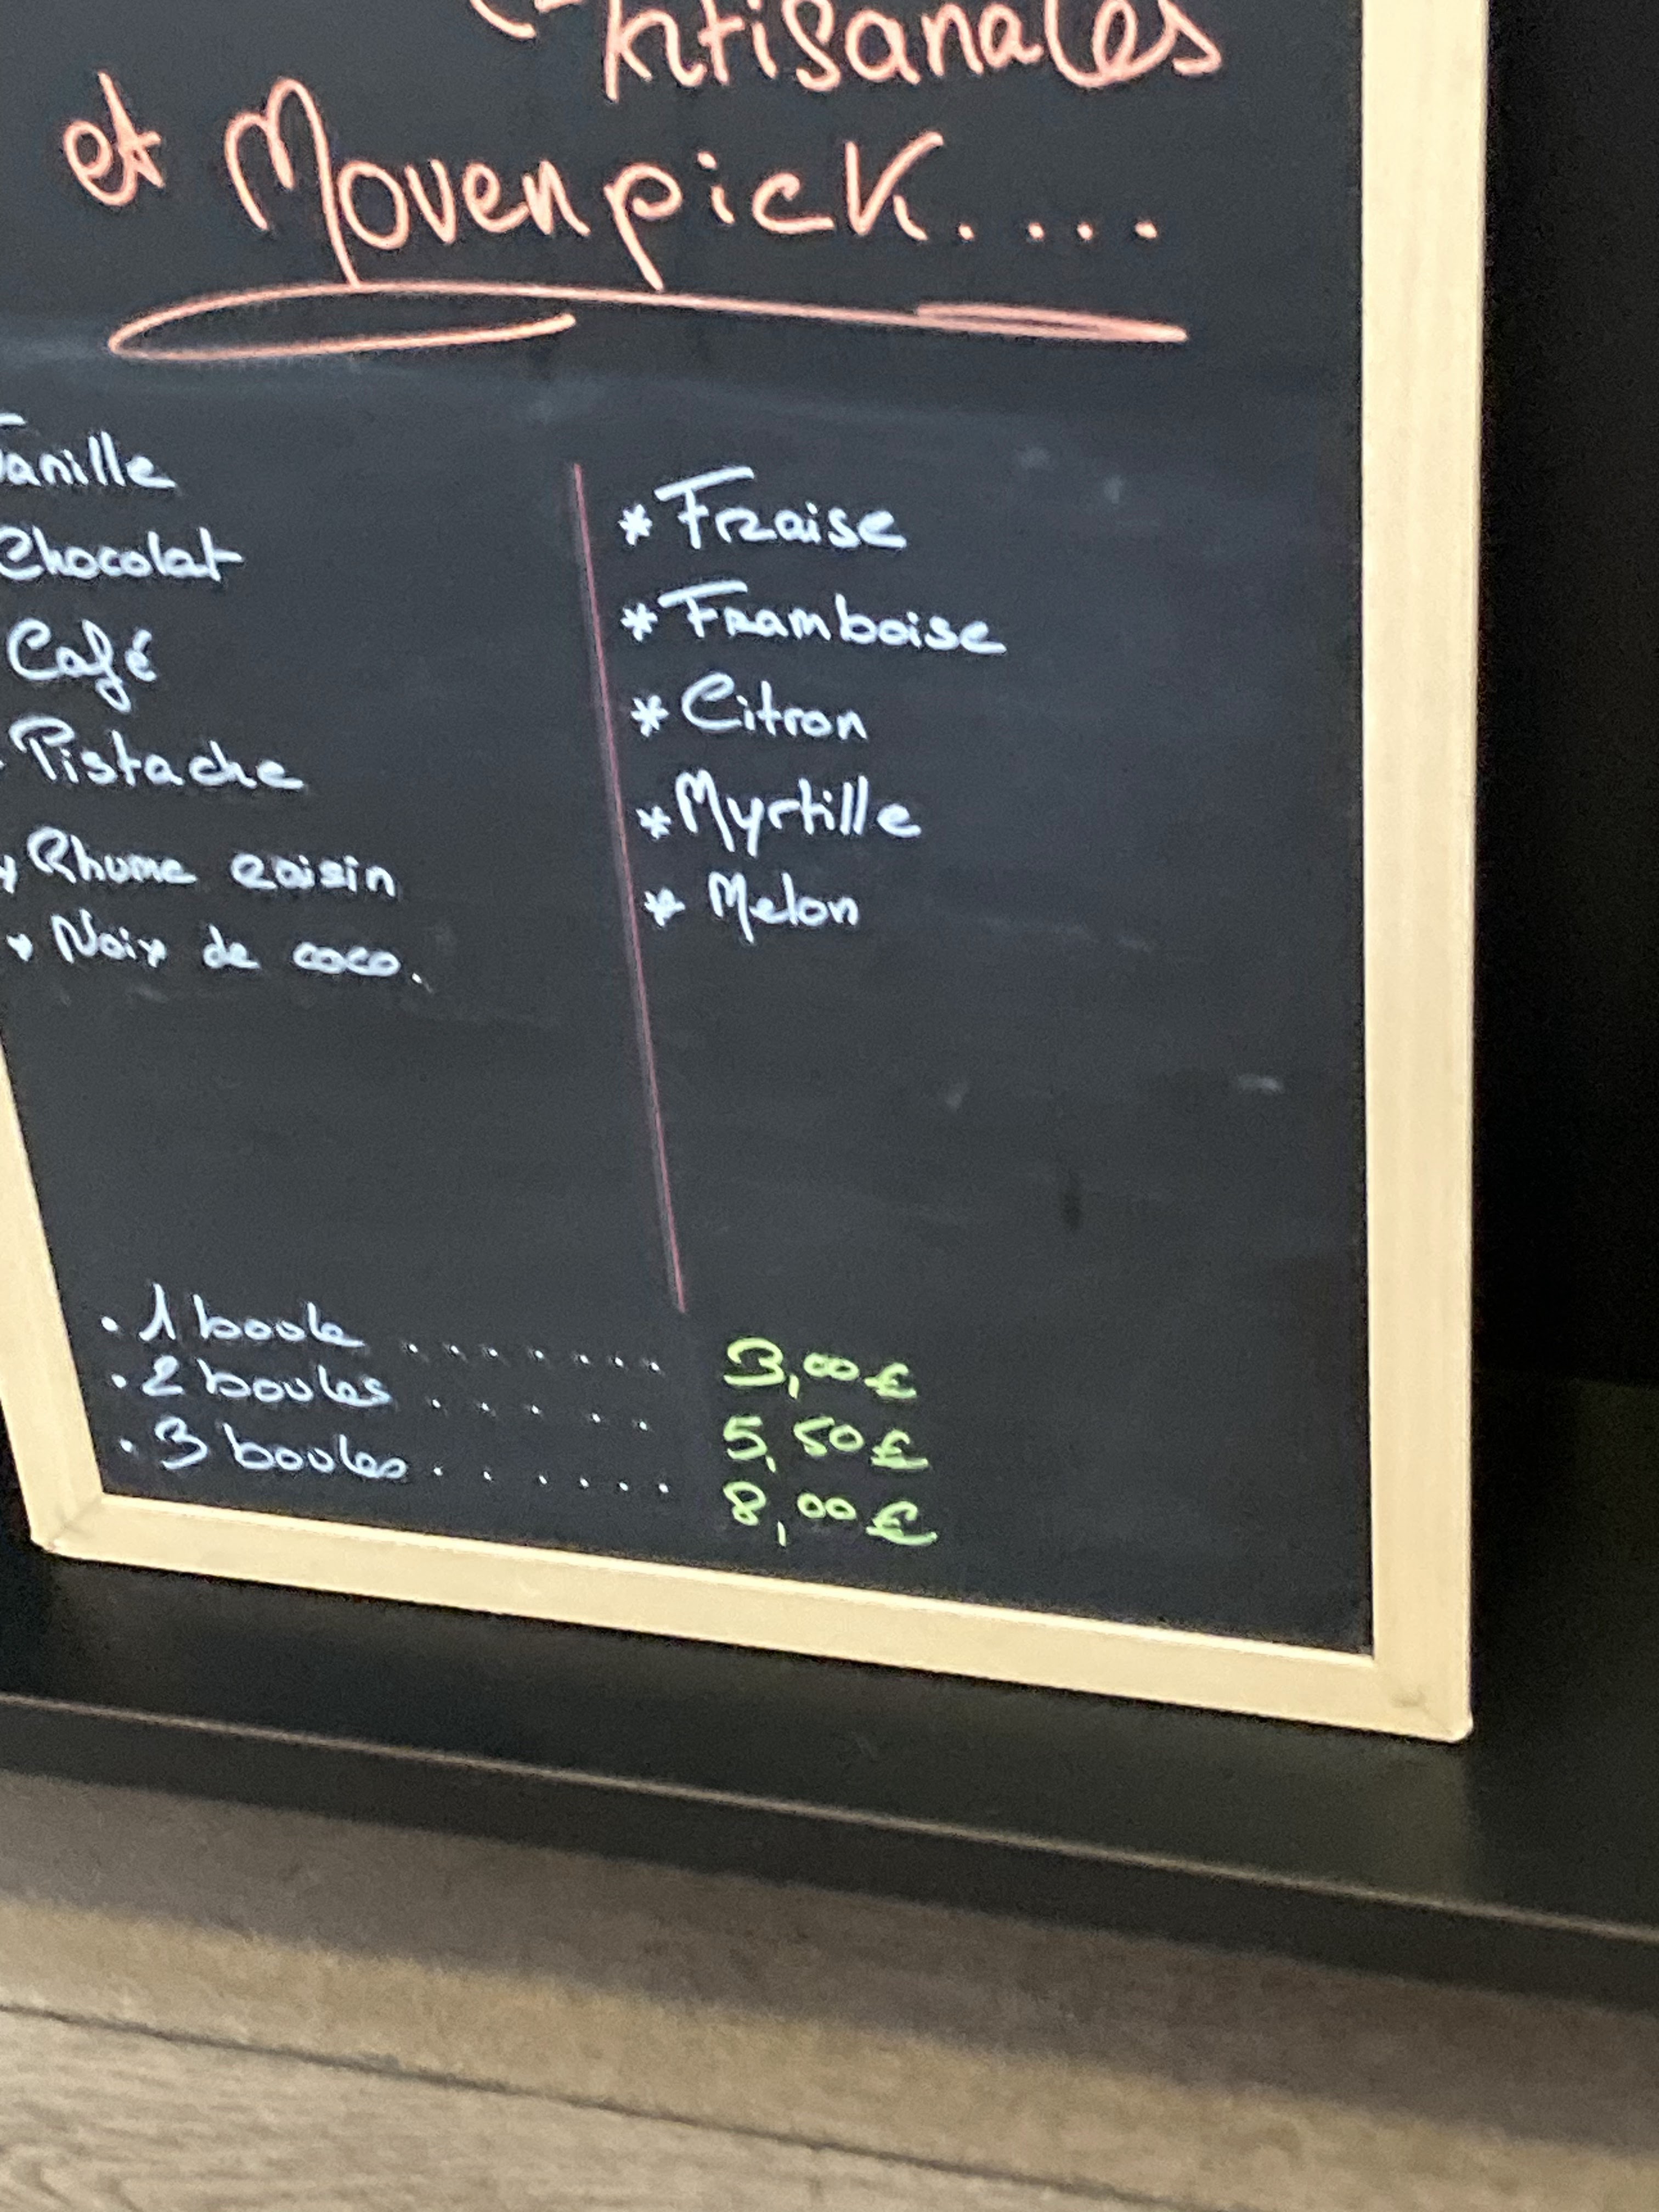 Artisanales
et Movenpick....
Vanille
Chocolat
Café
Pistache
* Rhume raisin
* Noix de coco.
* Fraise
* Framboise
* Citron
* Myrtille
* Melon
. 1 boule ....... 3,00 €
. 2 boules ...... 5,50 €
. 3 boules ...... 8,00 €